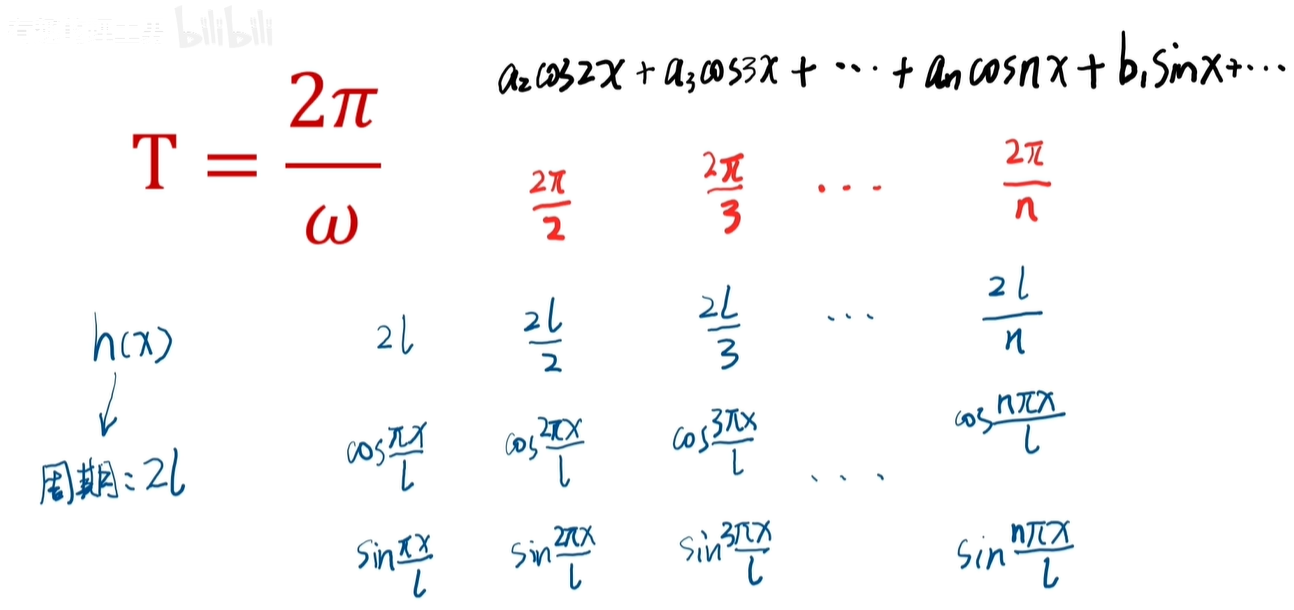 bilibili
a₂cos2x + a₃cos3x + ⋯ + aₙcosnx + b₁sinx+⋯
T = 2π/ω
2π/2 2π/3 ⋯ 2π/n
h(x) 2l 2l/2 2l/3 ⋯ 2l/n
cos πx/l cos 2πx/l cos 3πx/l ⋯ cos nπx/l
周期：2l
sin πx/l sin 2πx/l sin 3πx/l sin nπx/l